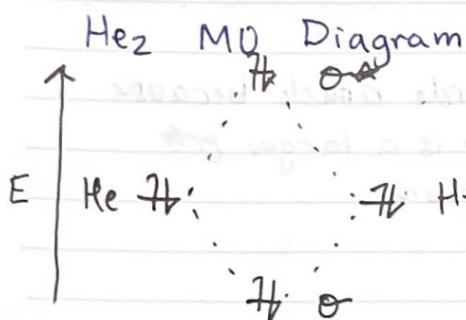 He₂ MO Diagram
σ*
E He ⥮ ⥮ H
σ